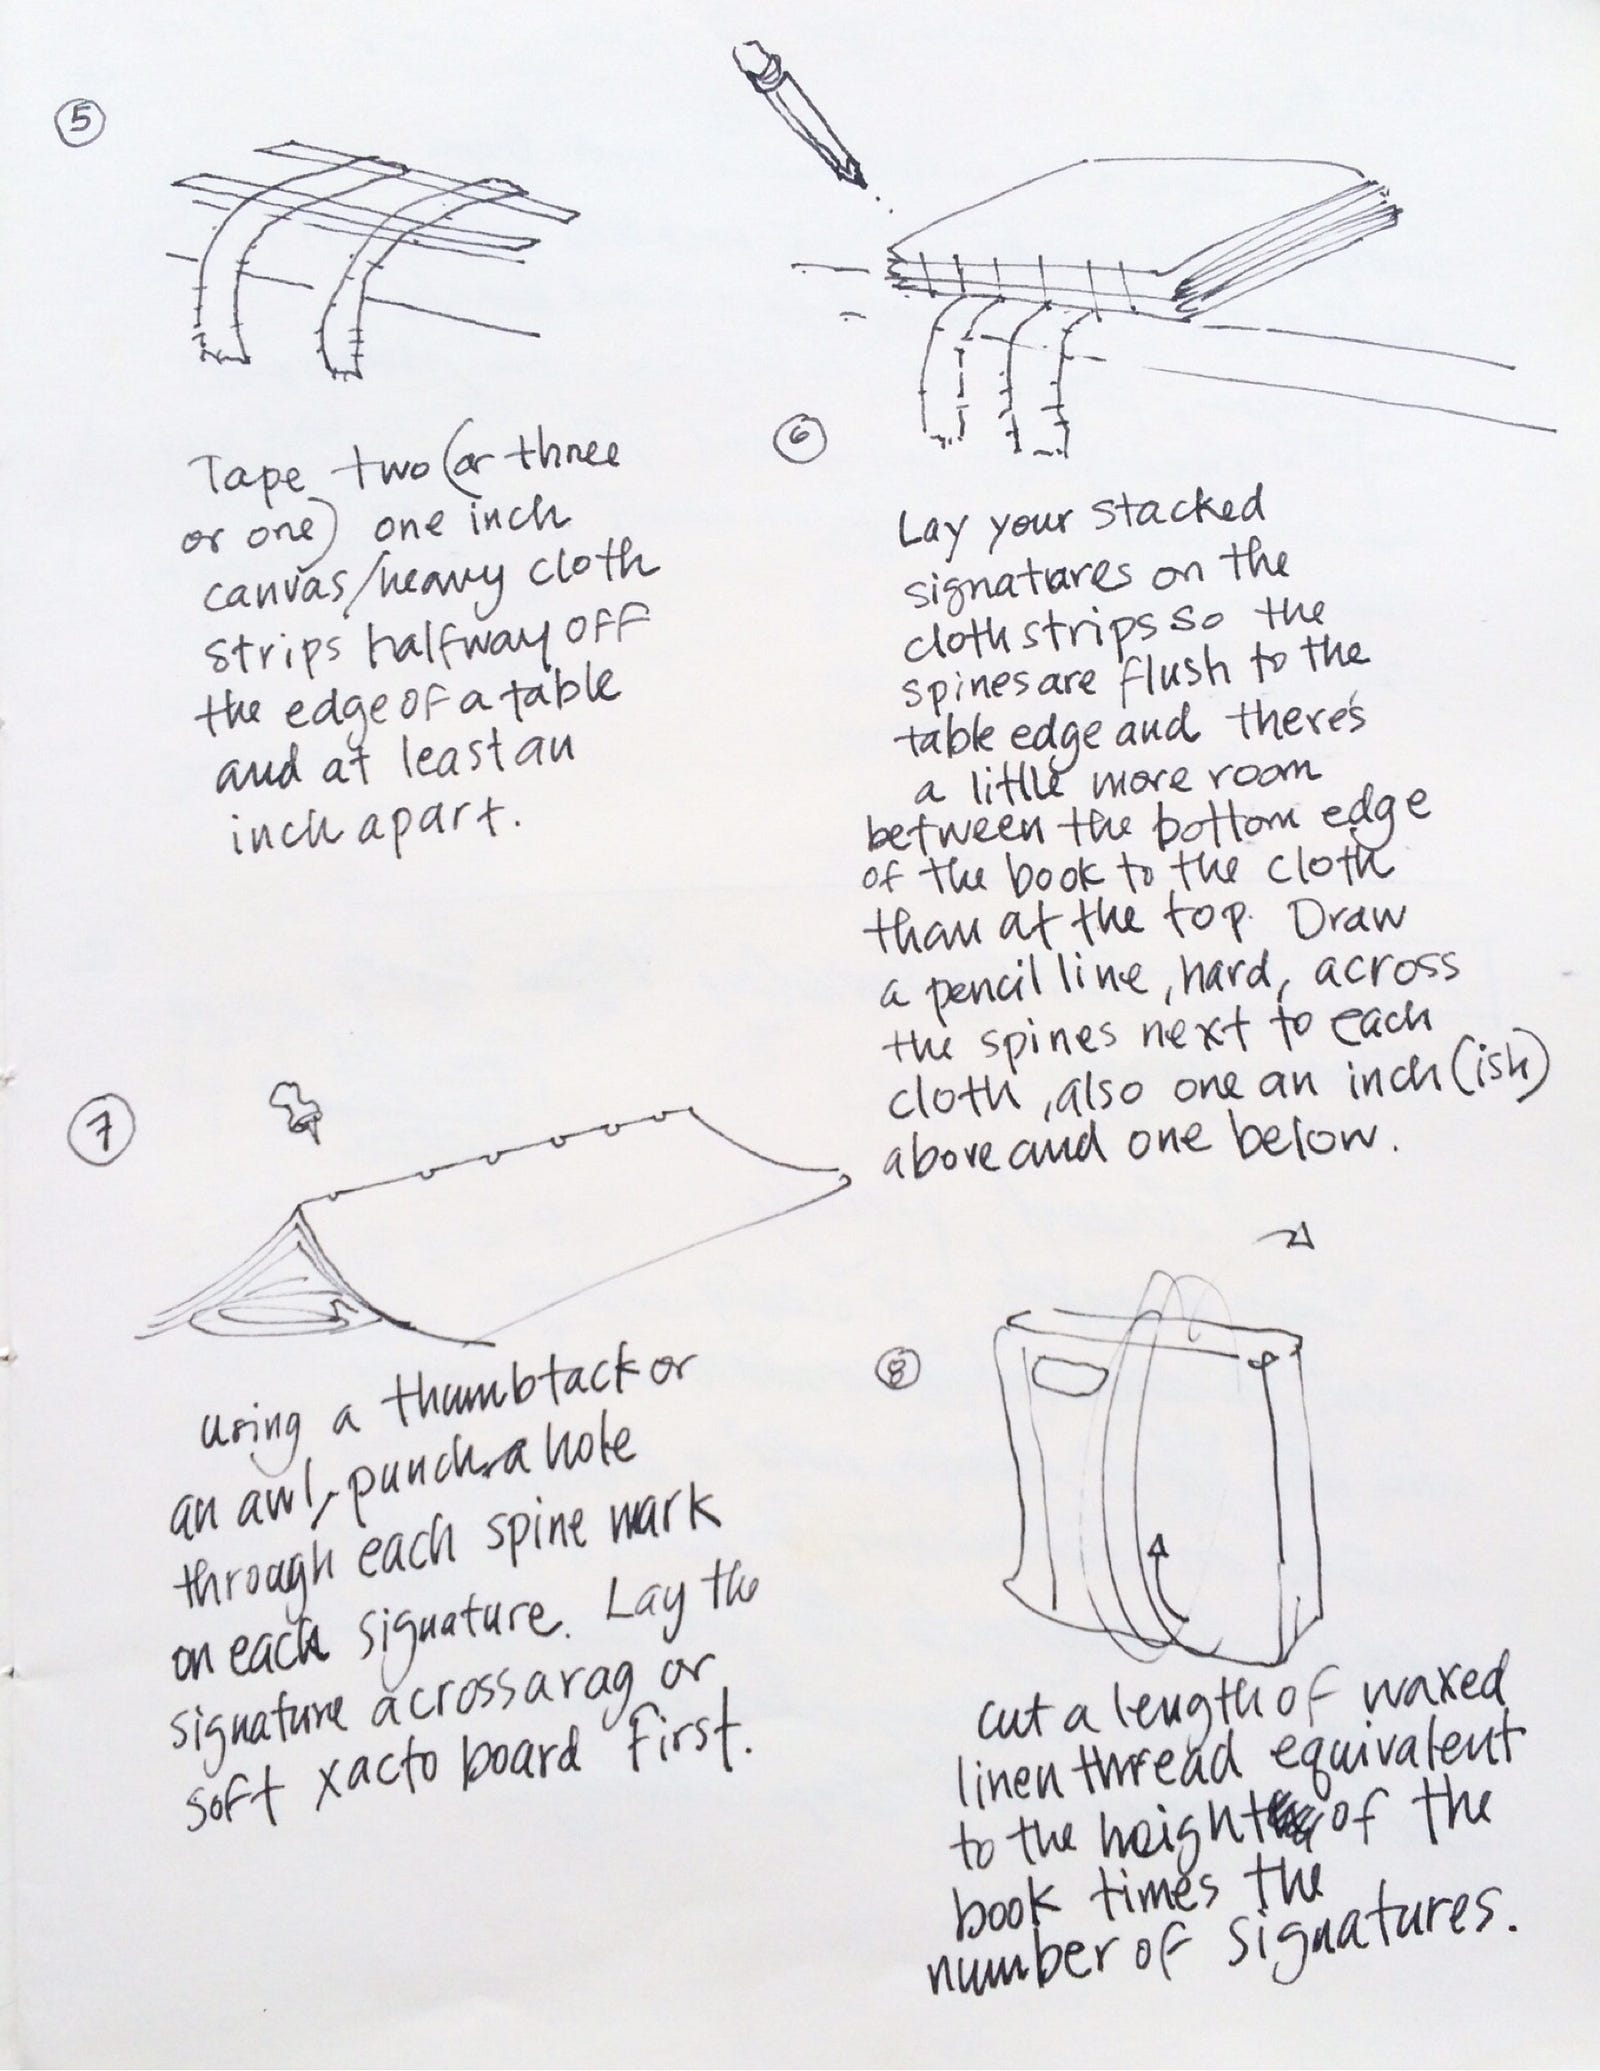 5
Tape two (or three
or one) one inch
canvas/heavy cloth
strips halfway off
the edge of a table
and at least an
inch apart.
6
Lay your stacked
signatures on the
cloth strips so the
spines are flush to the
table edge and there's
a little more room
between the bottom edge
of the book to the cloth
than at the top. Draw
a pencil line, hard, across
the spines next to each
cloth, also one an inch (ish)
above and one below.
7
using a thumbtack or
an awl, punch a hole
through each spine mark
on each signature. Lay the
signature across a rag or
soft xacto board first.
8
cut a length of waxed
linen thread equivalent
to the height of the
book times the
number of signatures.